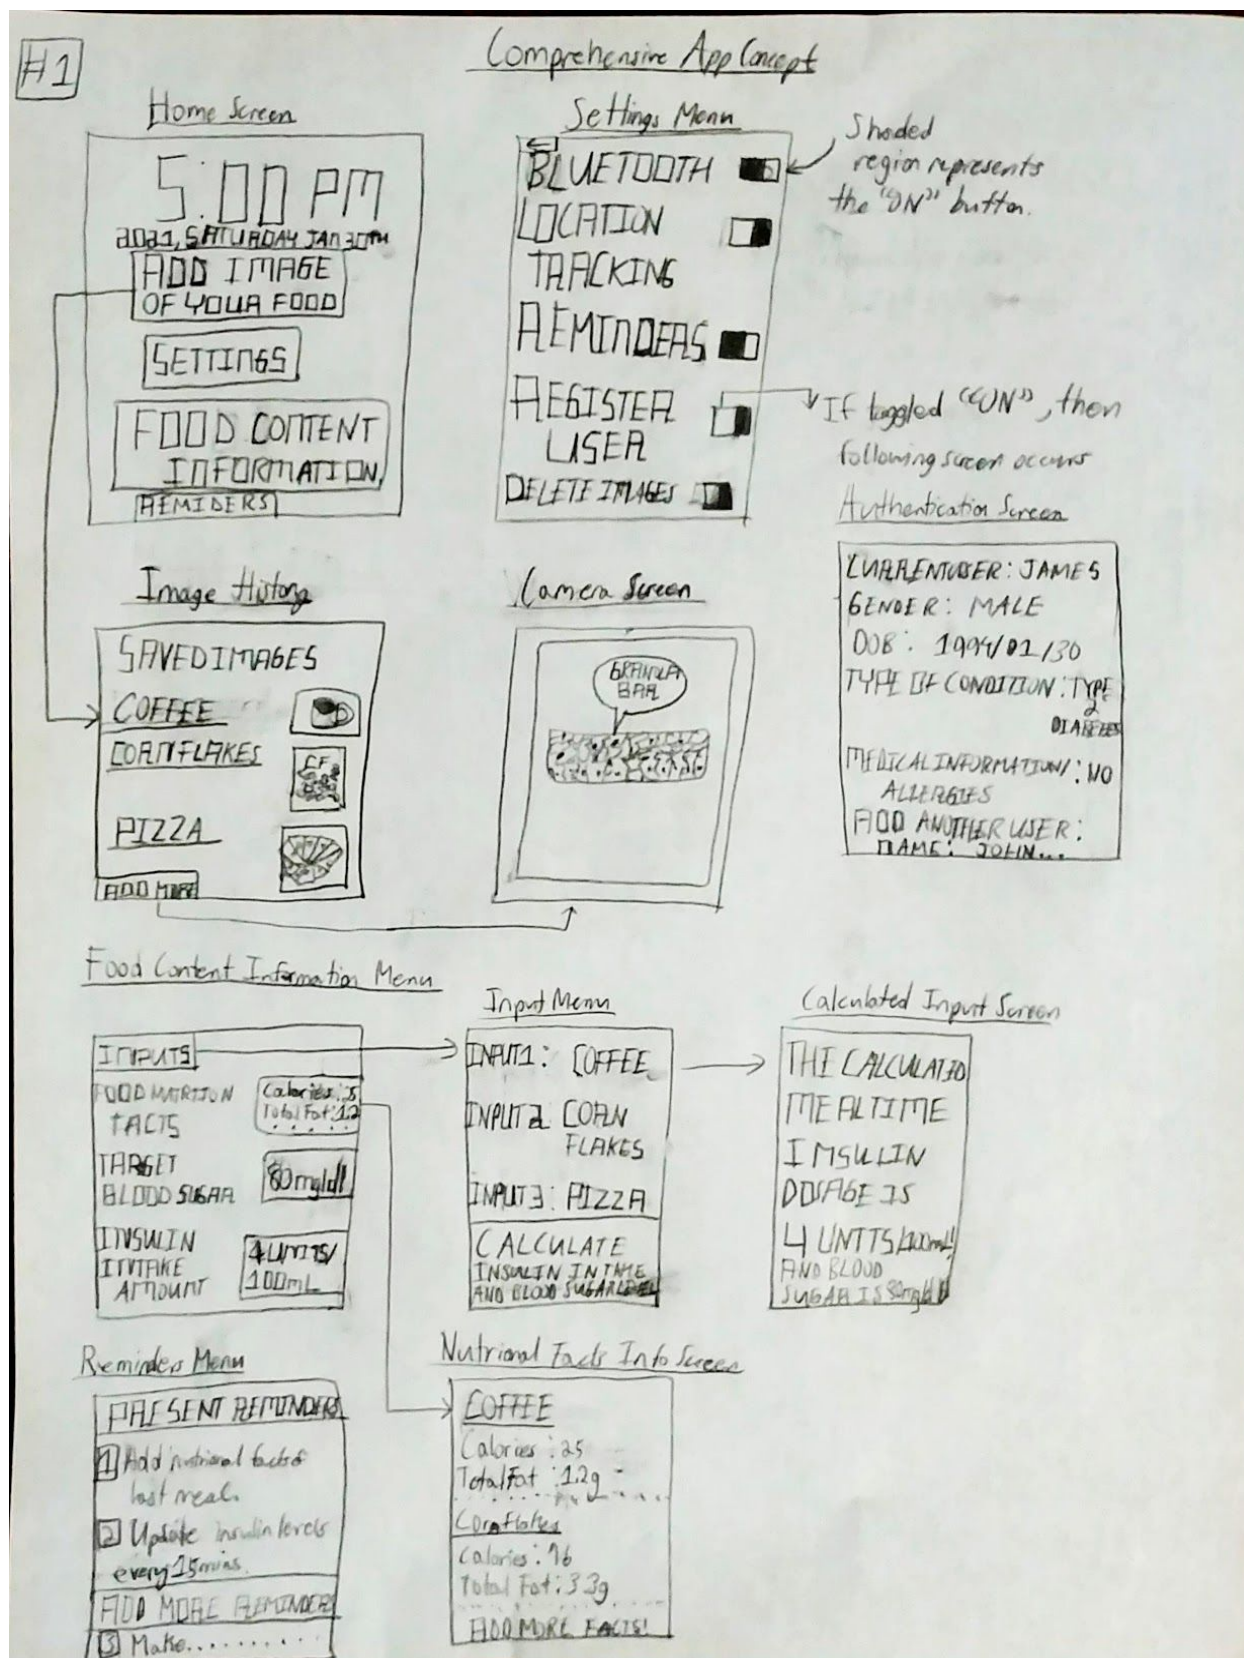 #1
Comprehensive App Concept
Home Screen
5:00 PM
2021, SATURDAY JAN 30TH
ADD IMAGE
OF YOUR FOOD
SETTINGS
FOOD CONTENT
INFORMATION
REMIDERS
Settings Menu
BLUETOOTH
LOCATION
TRACKING
REMINDERS
REGISTER
USER
DELETE IMAGES
Shaded
region represents
the "ON" button.
If toggled "ON", then
following screen occurs
Authentication Screen
CURRENT USER: JAMES
GENDER: MALE
DOB: 1994/01/30
TYPE OF CONDITION: TYPE
2
DIABETES
MEDICAL INFORMATION/: NO
ALLERGIES
ADD ANOTHER USER:
NAME: JOHN...
Image History
SAVED IMAGES
COFFEE
CORNFLAKES
CF
PIZZA
ADD MORE
Camera Screen
GRANOLA
BAR
Food Content Information Menu
INPUTS
FOOD NUTRITION
FACTS
Calories: 25
Total Fat: 1.2
TARGET
BLOOD SUGAR
80mg/dl
INSULIN
INTAKE
AMOUNT
4 UNITS/
100mL
Input Menu
INPUT1: COFFEE
INPUT2: CORN
FLAKES
INPUT3: PIZZA
CALCULATE
INSULIN INTAKE
AND BLOOD SUGAR LEVEL
Calculated Input Screen
THE CALCULATED
MEALTIME
INSULIN
DOSAGE IS
4 UNITS/100mL!
AND BLOOD
SUGAR IS 80mg/dl
Reminders Menu
PRESENT REMINDERS
1 Add nutrional facts of
last meal.
2 Update insulin levels
every 15 mins.
ADD MORE REMINDERS
3 Make..........
Nutrional Facts Info Screen
COFFEE
Calories: 25
Total Fat: 1.2g
Cornflakes
Calories: 96
Total Fat: 3.3g
ADD MORE FACTS!